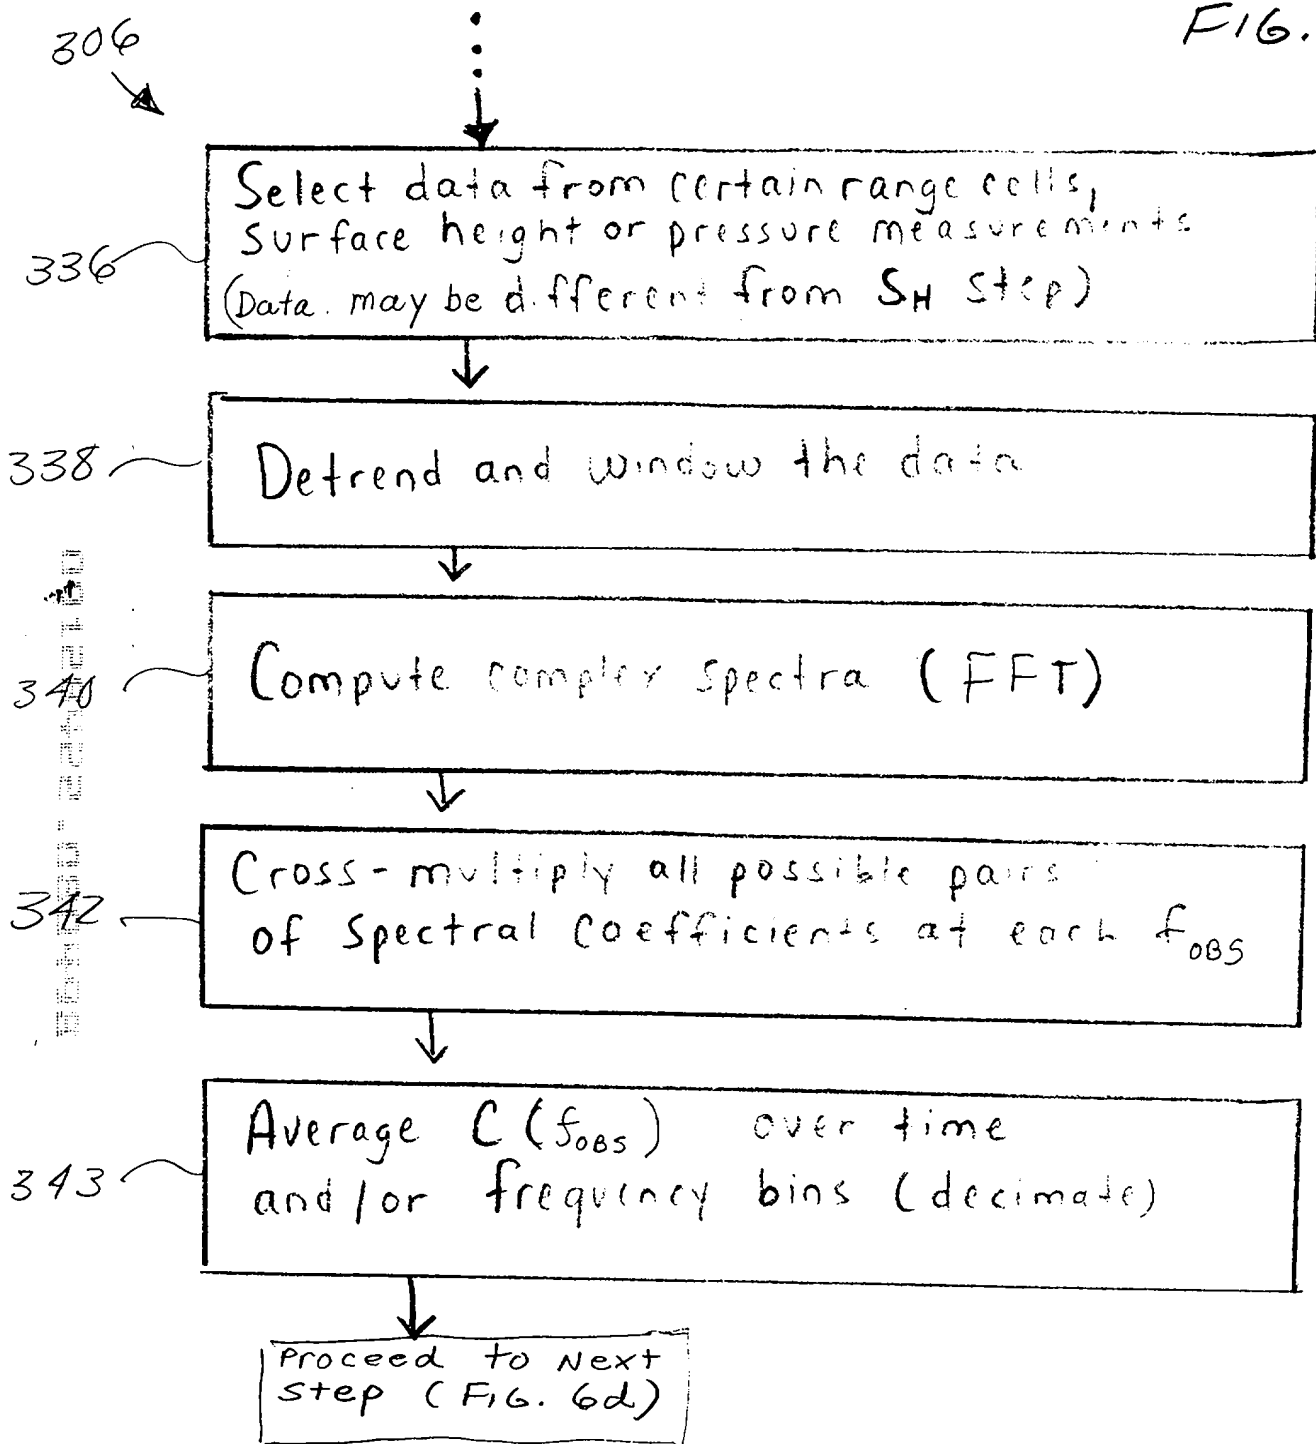 306
FIG.
Select data from certain range cells,
surface height or pressure measurements
(Data may be different from SH step)
336
Detrend and window the data
338
Compute complex spectra (FFT)
340
Cross-multiply all possible pairs
of spectral coefficients at each fOBS
342
Average C(fOBS) over time
and/or frequency bins (decimate)
343
Proceed to Next
step (FIG. 6d)